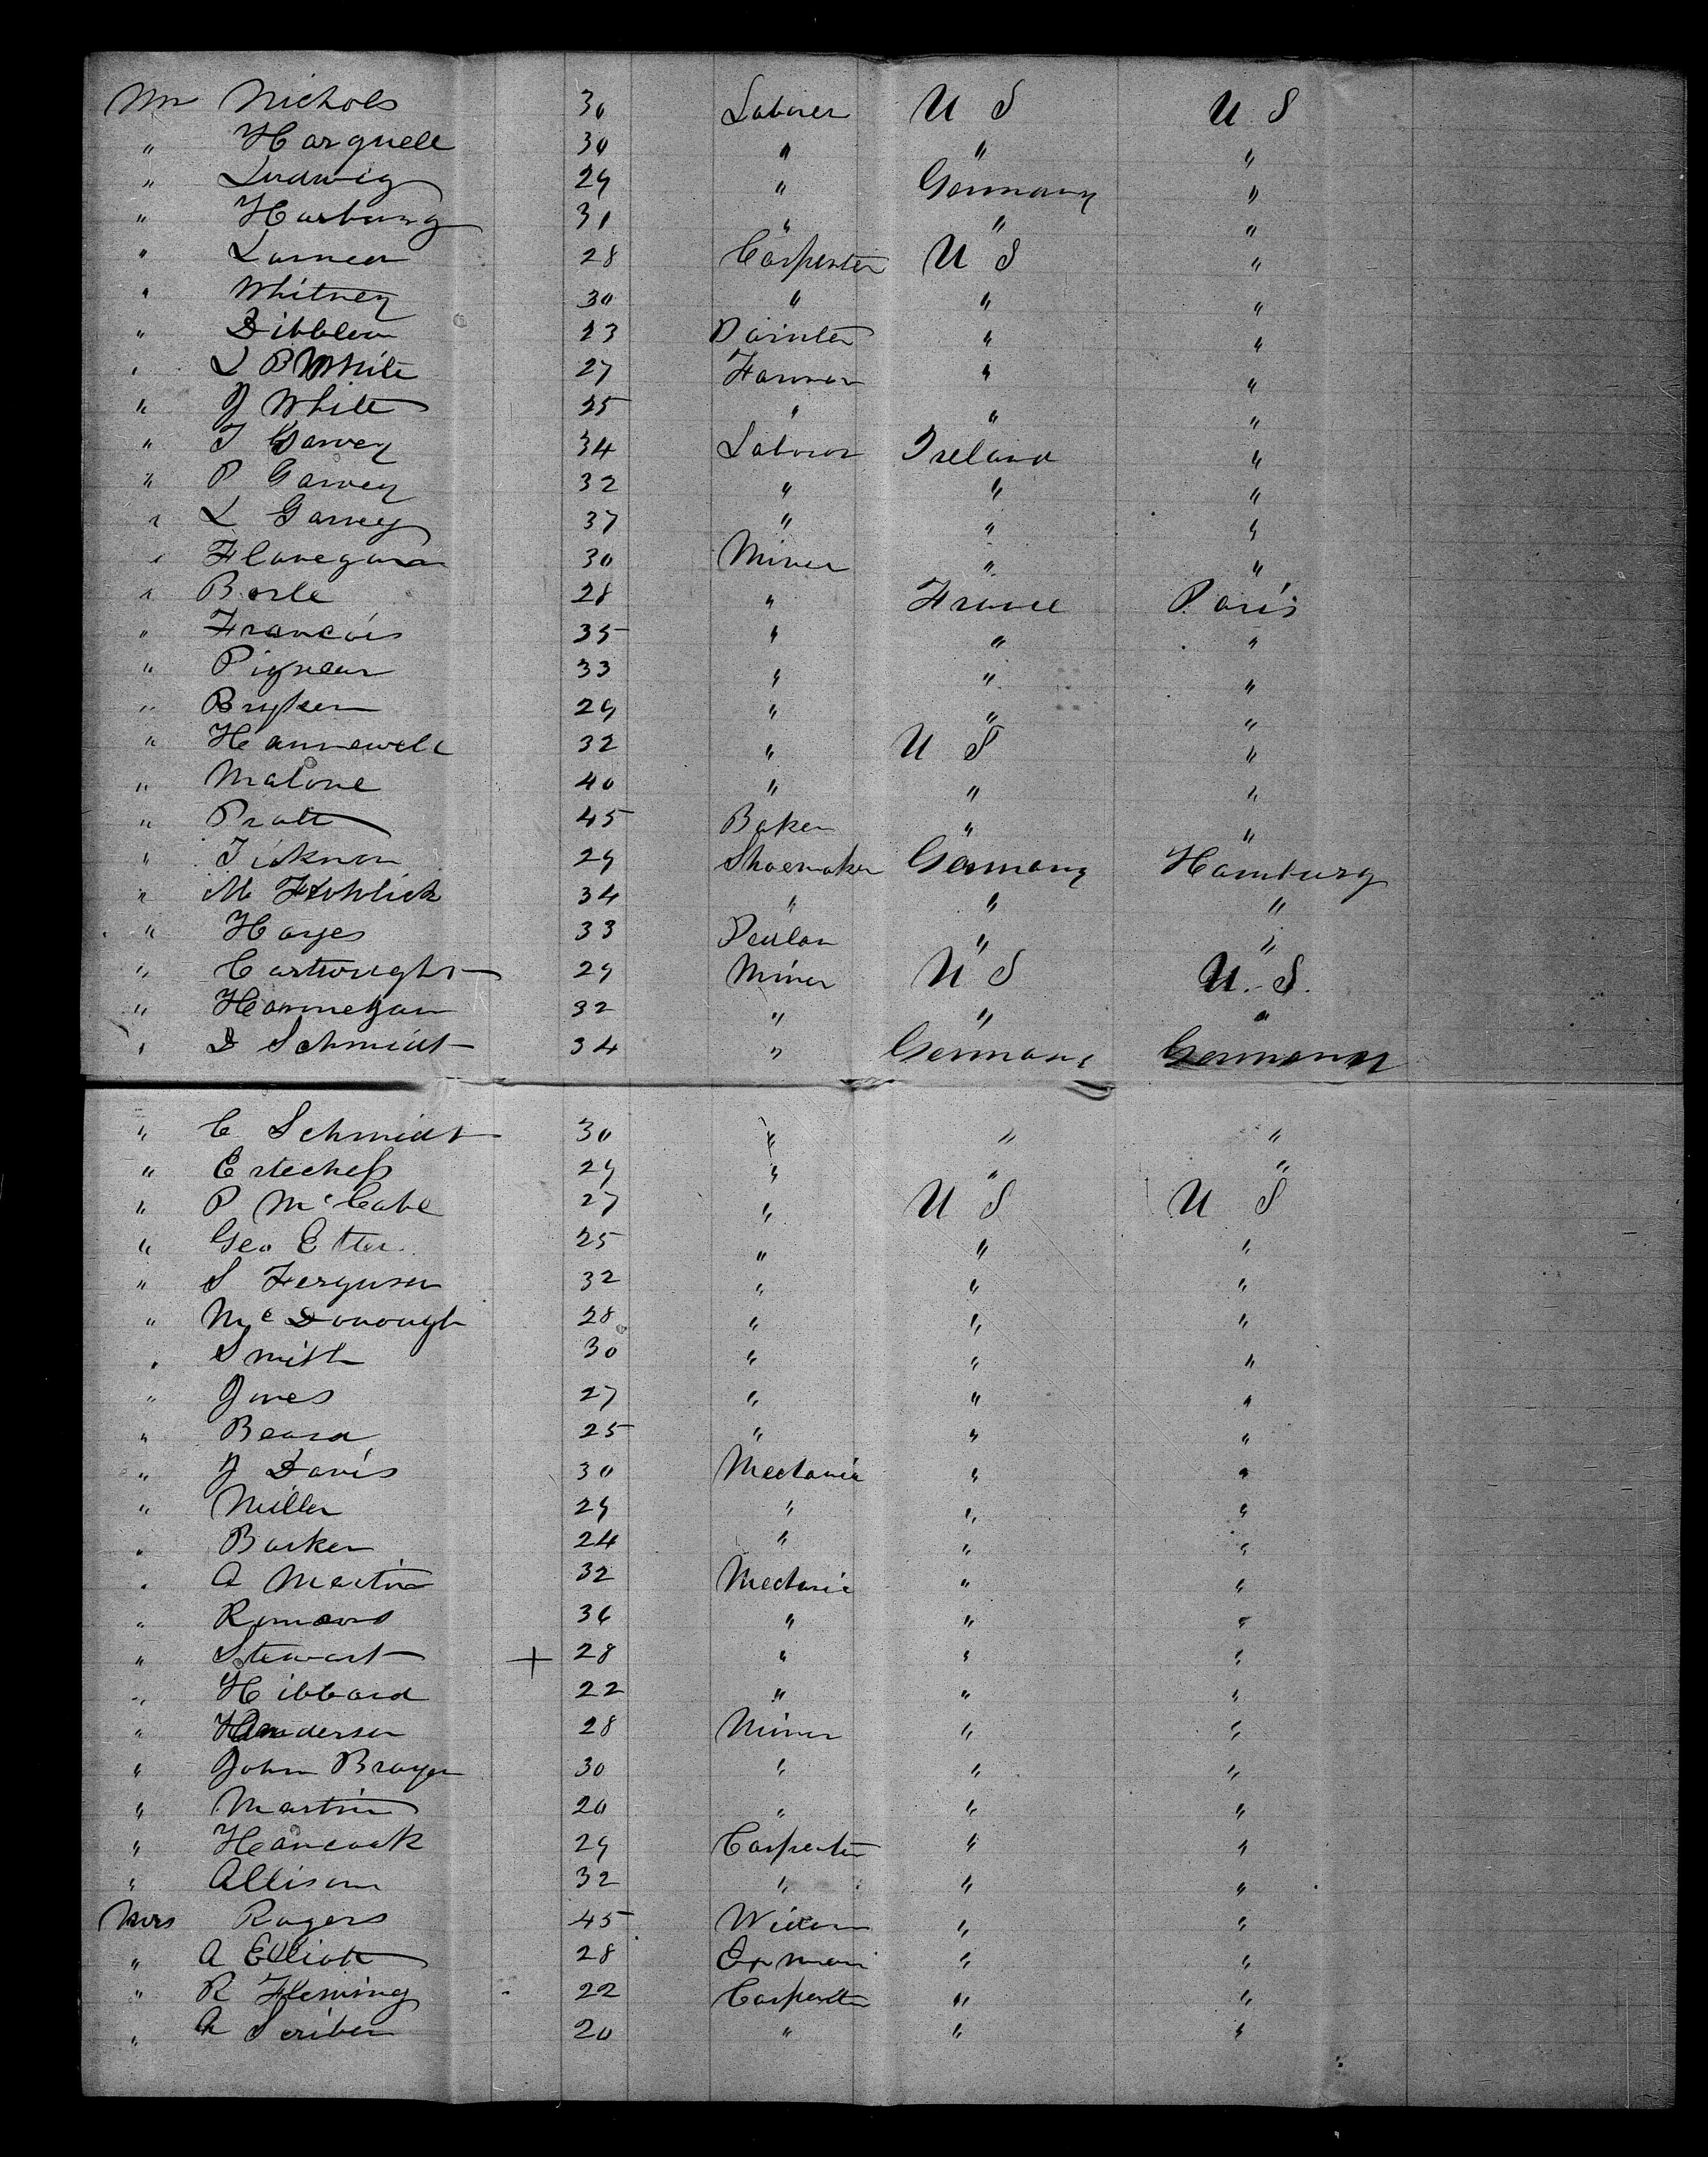 Mr Nichols 30 Laborer U S U S
" Hargnell 30 " " "
" Ludwig 29 " Germany "
" Harburg 31 " " "
" Larner 28 Carpenter U S "
" Whitney 30 " " "
" Dibblee 23 Painter " "
" L P White 27 Farmer " "
" J White 25 " " "
" T Garvey 34 Laborer Ireland "
" P Garvey 32 " " "
" L Garvey 37 " " "
" Flanegan 30 Miner " "
" Borle 28 " France Paris
" Francois 35 " " "
" Pigneur 33 " " "
" 29 " " "
" Hannewell 32 " U S "
" Malone 40 " " "
" Pratt 45 Baker " "
" Ticknor 29 Shoemaker Germany Hamburg
" M 34 " " "
" Hayes 33 " "
" Cartwright 29 Miner U S U. S.
" Hannegan 32 " " "
" D Schmidt 34 " Germany Germany
" C Schmidt 30 " " "
" 29 " " "
" P McCabe 27 " U S U S
" Geo Etter 25 " " "
" S Ferguson 32 " " "
" McDonough 28 " " "
" Smith 30 " " "
" Jones 27 " " "
" Beard 25 " " "
" J Davis 30 Mechanic " "
" Miller 29 " " "
" Barker 24 " " "
" A Martin 32 Mechanic " "
" 36 " " "
" Stewart + 28 " " "
" Hibbard 22 " " "
" Henderson 28 Miner " "
" John 30 " " "
" Martin 20 " " "
" Hancock 29 Carpenter " "
" Allison 32 " " "
Mrs Rogers 45 Widow " "
" A Elliott 28 " "
" R Fleming 22 Carpenter " "
" A Scriber 20 " " "